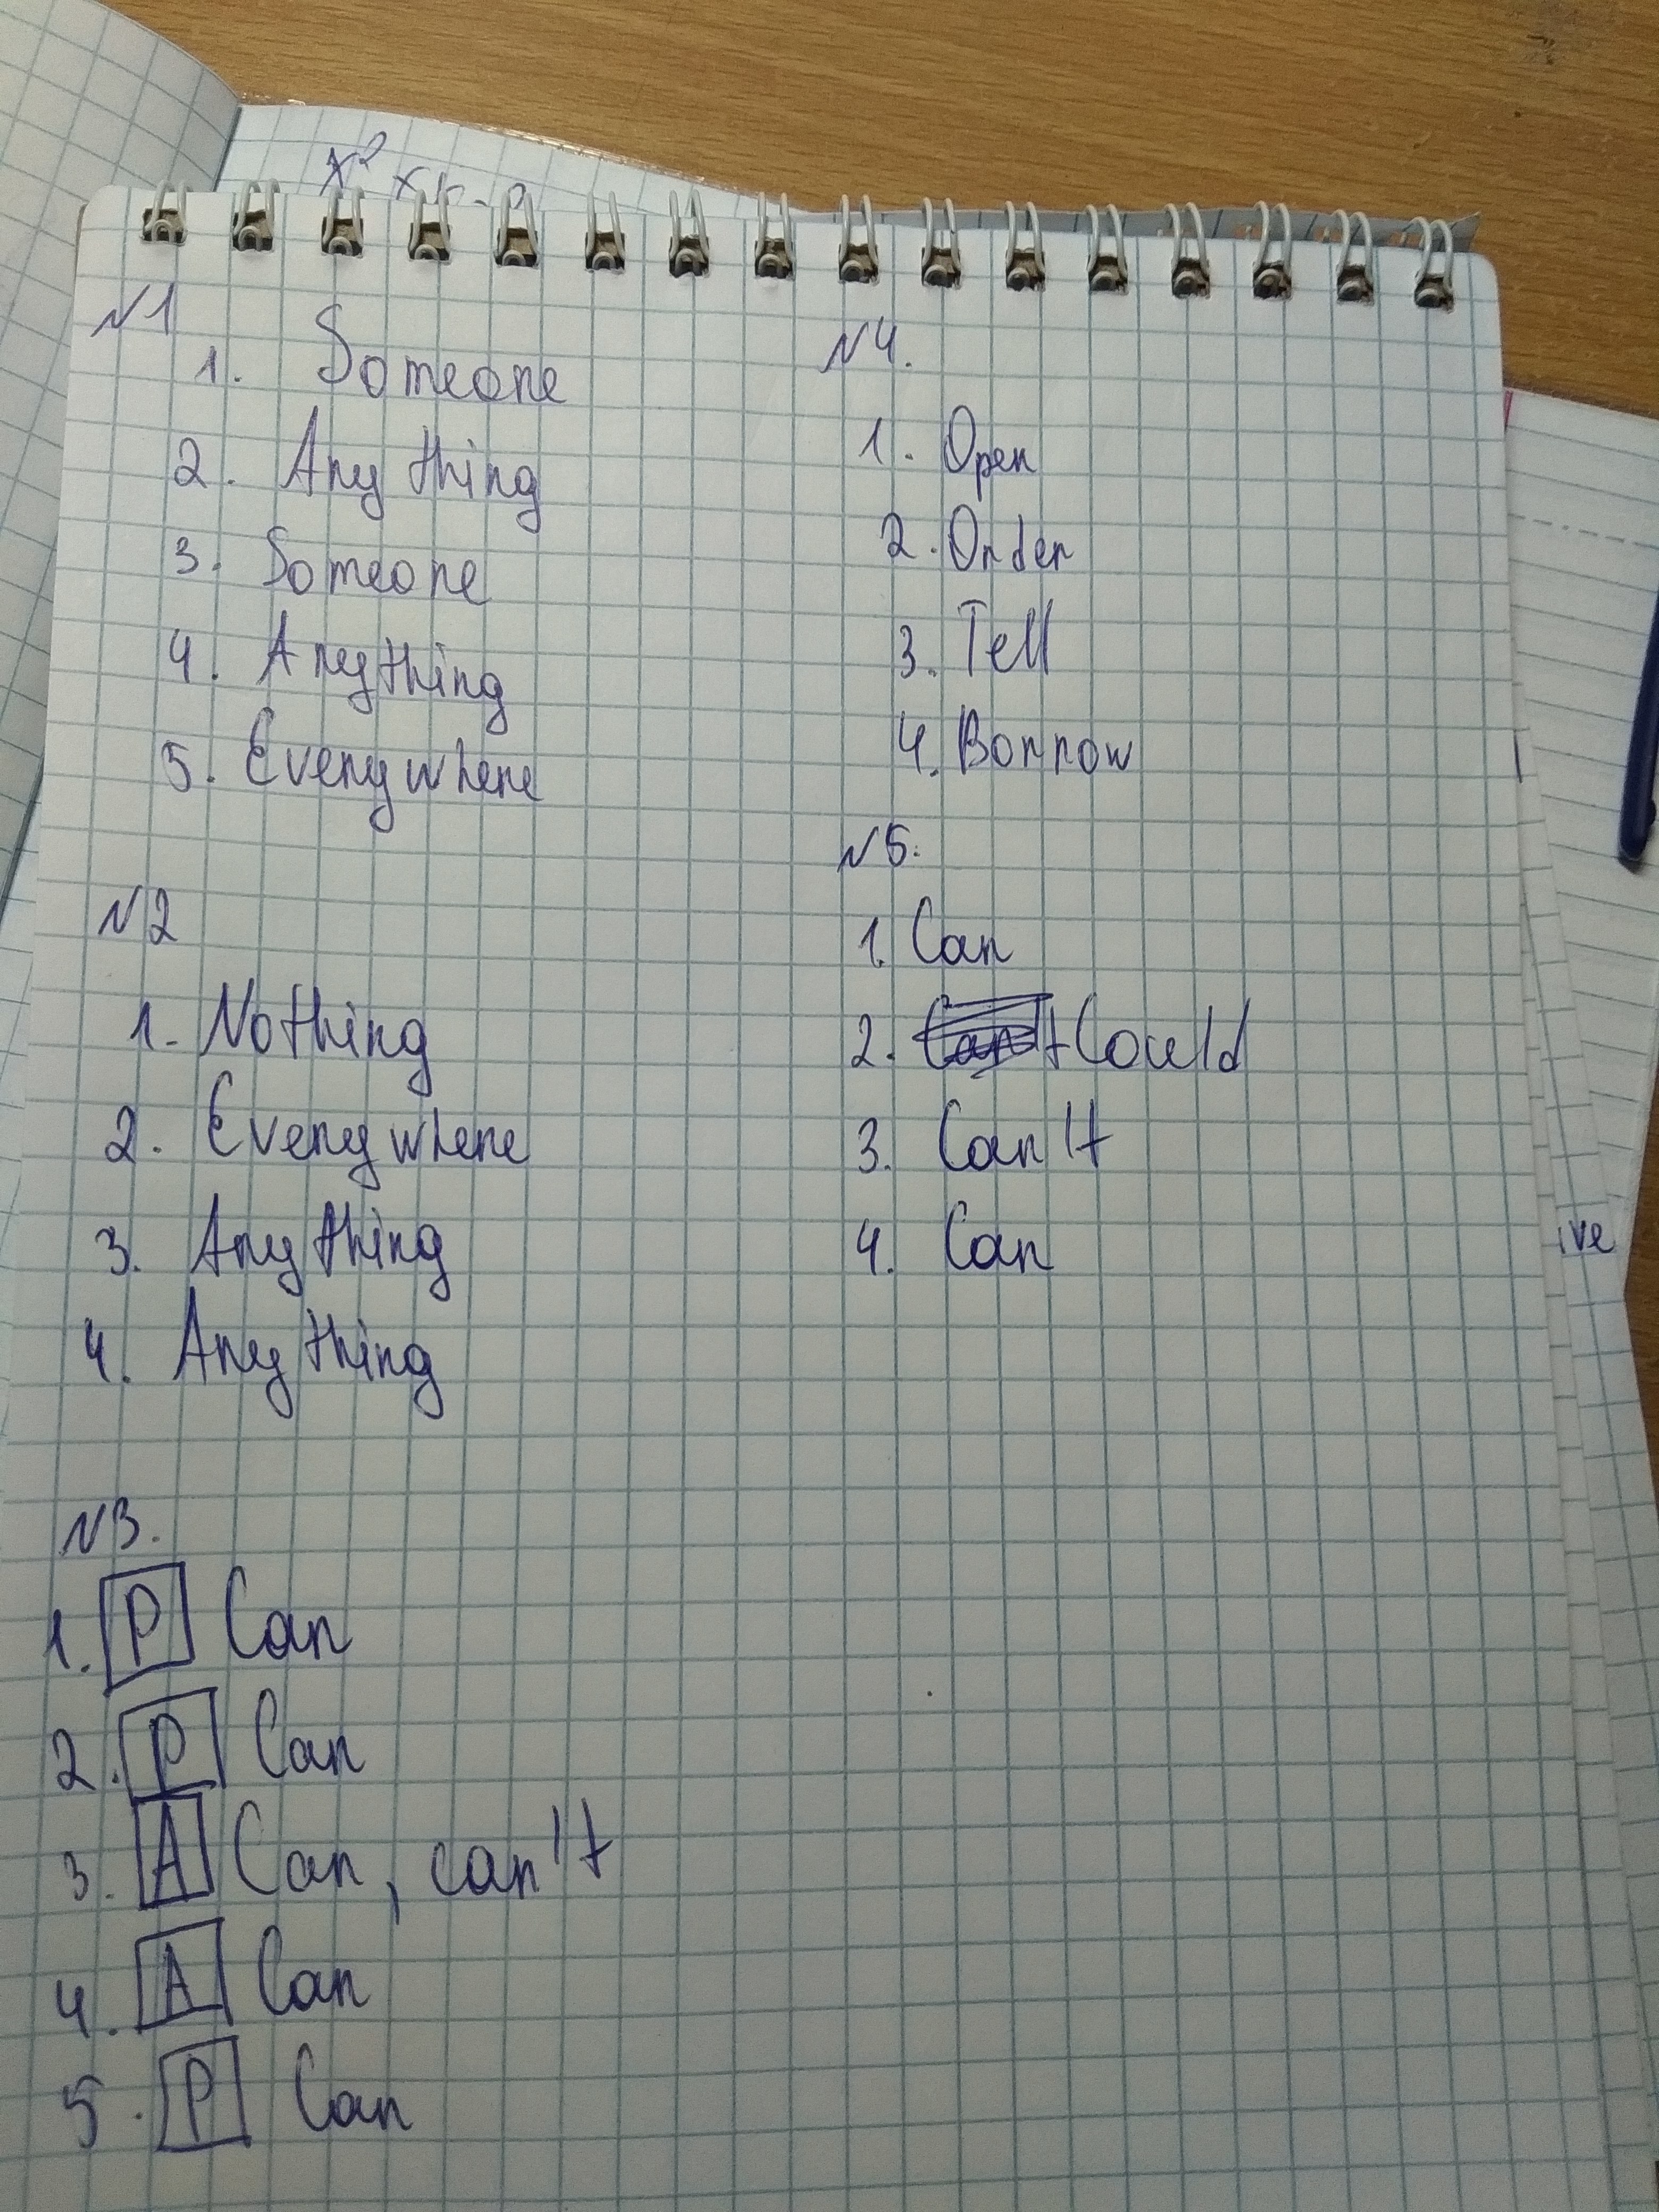 N1
1. Someone
2. Anything
3. Someone
4. Anything
5. Everywhere
N2
1. Nothing
2. Everywhere
3. Anything
4. Anything
N3.
1. P Can
2. P Can
3. A Can, can't
4. A Can
5. P Can
N4.
1. Open
2. Order
3. Tell
4. Borrow
N5.
1. Can
2. Could
3. Can't
4. Can
ive